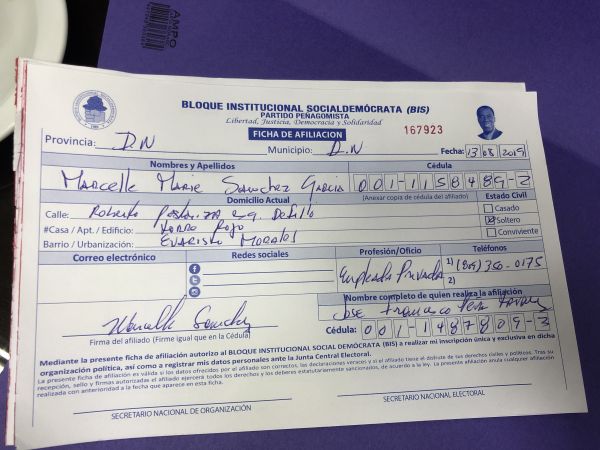 AMPO
BLOQUE INSTITUCIONAL SOCIALDEMÓCRATA (BIS)
PARTIDO PEÑAGOMISTA
Libertad, Justicia, Democracia y Solidaridad
FICHA DE AFILIACION
167923
Provincia: D.N Municipio: D.N Fecha: 13 08 2019
Nombres y Apellidos Cédula
Marcelle Marie Sanchez Garcia 001-1158489-2
Domicilio Actual (Anexar copia de cédula del afiliado) Estado Civil
Calle: Roberto esq. Defillo Casado
#Casa / Apt. / Edificio: Torre Rojo Soltero
Barrio / Urbanización: Evaristo Morales Conviviente
Correo electrónico Redes sociales Profesión/Oficio Teléfonos
Empleada Privada 1) (809) 350-0175
2)
Nombre completo de quien realiza la afiliación
Jose Francisco Peña
Marcelle Sanchez
Firma del afiliado (Firme igual que en la Cédula) Cédula: 001-1487809-3
Mediante la presente ficha de afiliación autorizo al BLOQUE INSTITUCIONAL SOCIAL DEMÓCRATA (BIS) a realizar mi inscripción única y exclusiva en dicha
organización política, así como a registrar mis datos personales ante la Junta Central Electoral.
La presente ficha de afiliación es válida si los datos ofrecidos por el afiliado son correctos, las declaraciones veraces y si el afiliado tiene el disfrute de sus derechos civiles y políticos. Tras su
recepción, sello y firmas autorizadas el afiliado ejercerá todos los derechos y los deberes estatutariamente sancionados, de acuerdo a la ley. La presente afiliación anula cualquier afiliación
realizada con anterioridad a la fecha que aparece en esta ficha.
SECRETARIO NACIONAL DE ORGANIZACIÓN SECRETARIO NACIONAL ELECTORAL